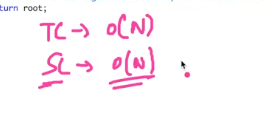 turn root;
TC → O(N)
SC → O(N)